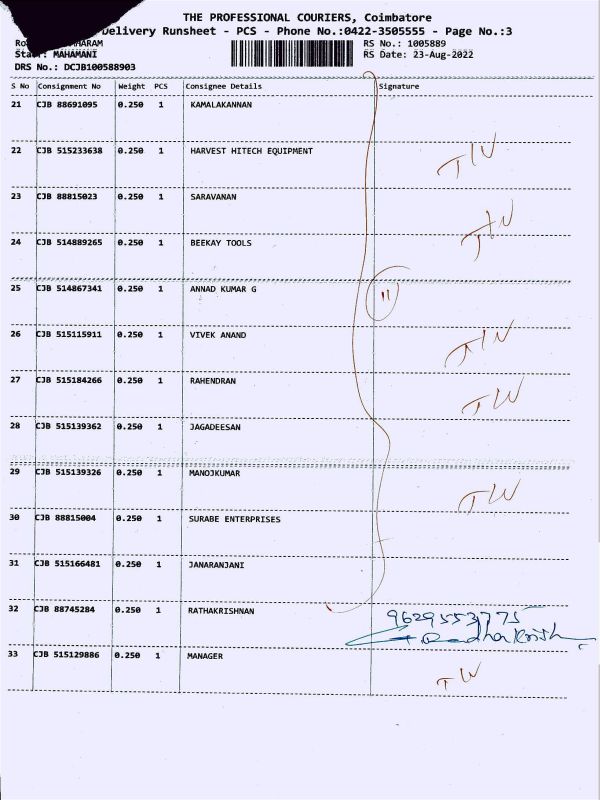 THE PROFESSIONAL COURIERS, Coimbatore
Delivery Runsheet - PCS - Phone No.:0422-3505555 - Page No.:3
RS No.: 1005889
MAHAMANI RS Date: 23-Aug-2022
DRS No.: DCJB100588903
S No Consignment No Weight PCS Consignee Details Signature
21 CJB 88691095 0.250 1 KAMALAKANNAN
22 CJB 515233638 0.250 1 HARVEST HITECH EQUIPMENT
23 CJB 88815023 0.250 1 SARAVANAN
24 CJB 514889265 0.250 1 BEEKAY TOOLS
25 CJB 514867341 0.250 1 ANNAD KUMAR G 11
26 CJB 515115911 0.250 1 VIVEK ANAND
27 CJB 515184266 0.250 1 RAHENDRAN
28 CJB 515139362 0.250 1 JAGADEESAN
29 CJB 515139326 0.250 1 MANOJKUMAR
30 CJB 88815004 0.250 1 SURABE ENTERPRISES
31 CJB 515166481 0.250 1 JANARANJANI
32 CJB 88745284 0.250 1 RATHAKRISHNAN 9629553775
33 CJB 515129886 0.250 1 MANAGER